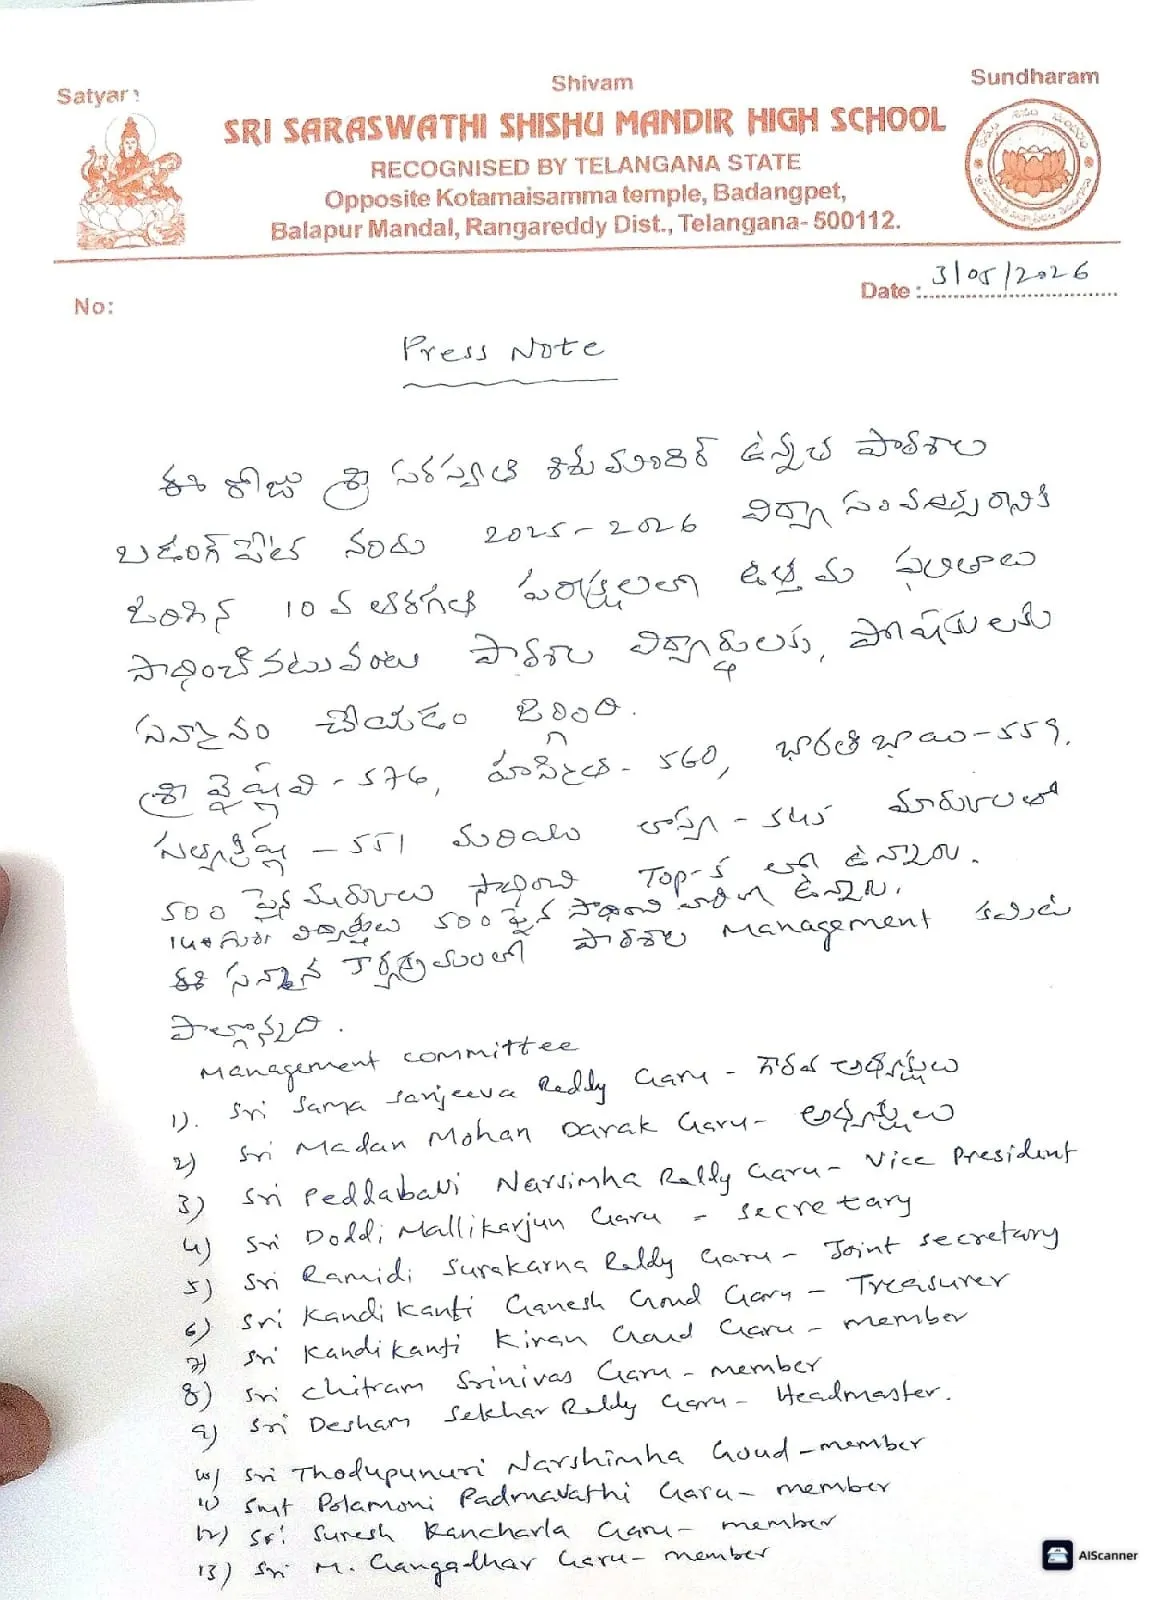 Satyam
Shivam
Sundharam
SRI SARASWATHI SHISHU MANDIR HIGH SCHOOL
RECOGNISED BY TELANGANA STATE
Opposite Kotamaisamma temple, Badangpet,
Balapur Mandal, Rangareddy Dist., Telangana- 500112.
No:
Date : 3/05/2026
Press Note
ఈ రోజు శ్రీ సరస్వతి శిశుమందిర్ ఉన్నత పాఠశాల
బడంగ్ పేట నందు 2025-2026 విద్యా సంవత్సరానికి
జరిగిన 10వ తరగతి పరీక్షలలో ఉత్తమ ఫలితాలు
సాధించినటువంటి పాఠశాల విద్యార్థులకు, పోషకులకు
సన్మానం చేయడం జరిగింది.
శ్రీ వైష్ణవి - 576, హర్షిత - 560, భారతి భాయి - 559,
సత్యక్రిష్ణ - 551 మరియు లాస్యా - 545 మార్కులతో
500 పైన మార్కులు సాధించి Top-5 లో ఉన్నారు.
14 గురు విద్యార్థులు 500 పైన సాధించి వారిగా ఉన్నారు.
ఈ సన్మాన కార్యక్రమంలో పాఠశాల Management కమిటీ
పాల్గొన్నది.
Management committee
1). Sri Sama Sanjeeva Reddy Garu - గౌరవ అధ్యక్షులు
2) Sri Madan Mohan Darak Garu - అధ్యక్షులు
3) Sri Peddabavi Narsimha Reddy Garu - Vice President
4) Sri Doddi Mallikarjun Garu - Secretary
5) Sri Ramidi Surakarna Reddy Garu - Joint Secretary
6) Sri Kandikanti Ganesh Goud Garu - Treasurer
7) Sri Kandikanti Kiran Goud Garu - member
8) Sri Chitram Srinivas Garu - member
9) Sri Desham Sekhar Reddy Garu - Headmaster.
10) Sri Thodupunuri Narshimha Goud - member
11) Smt Polamoni Padmavathi Garu - member
12) Sri Suresh Kancharla Garu - member
13) Sri M. Gangadhar Garu - member
AIScanner